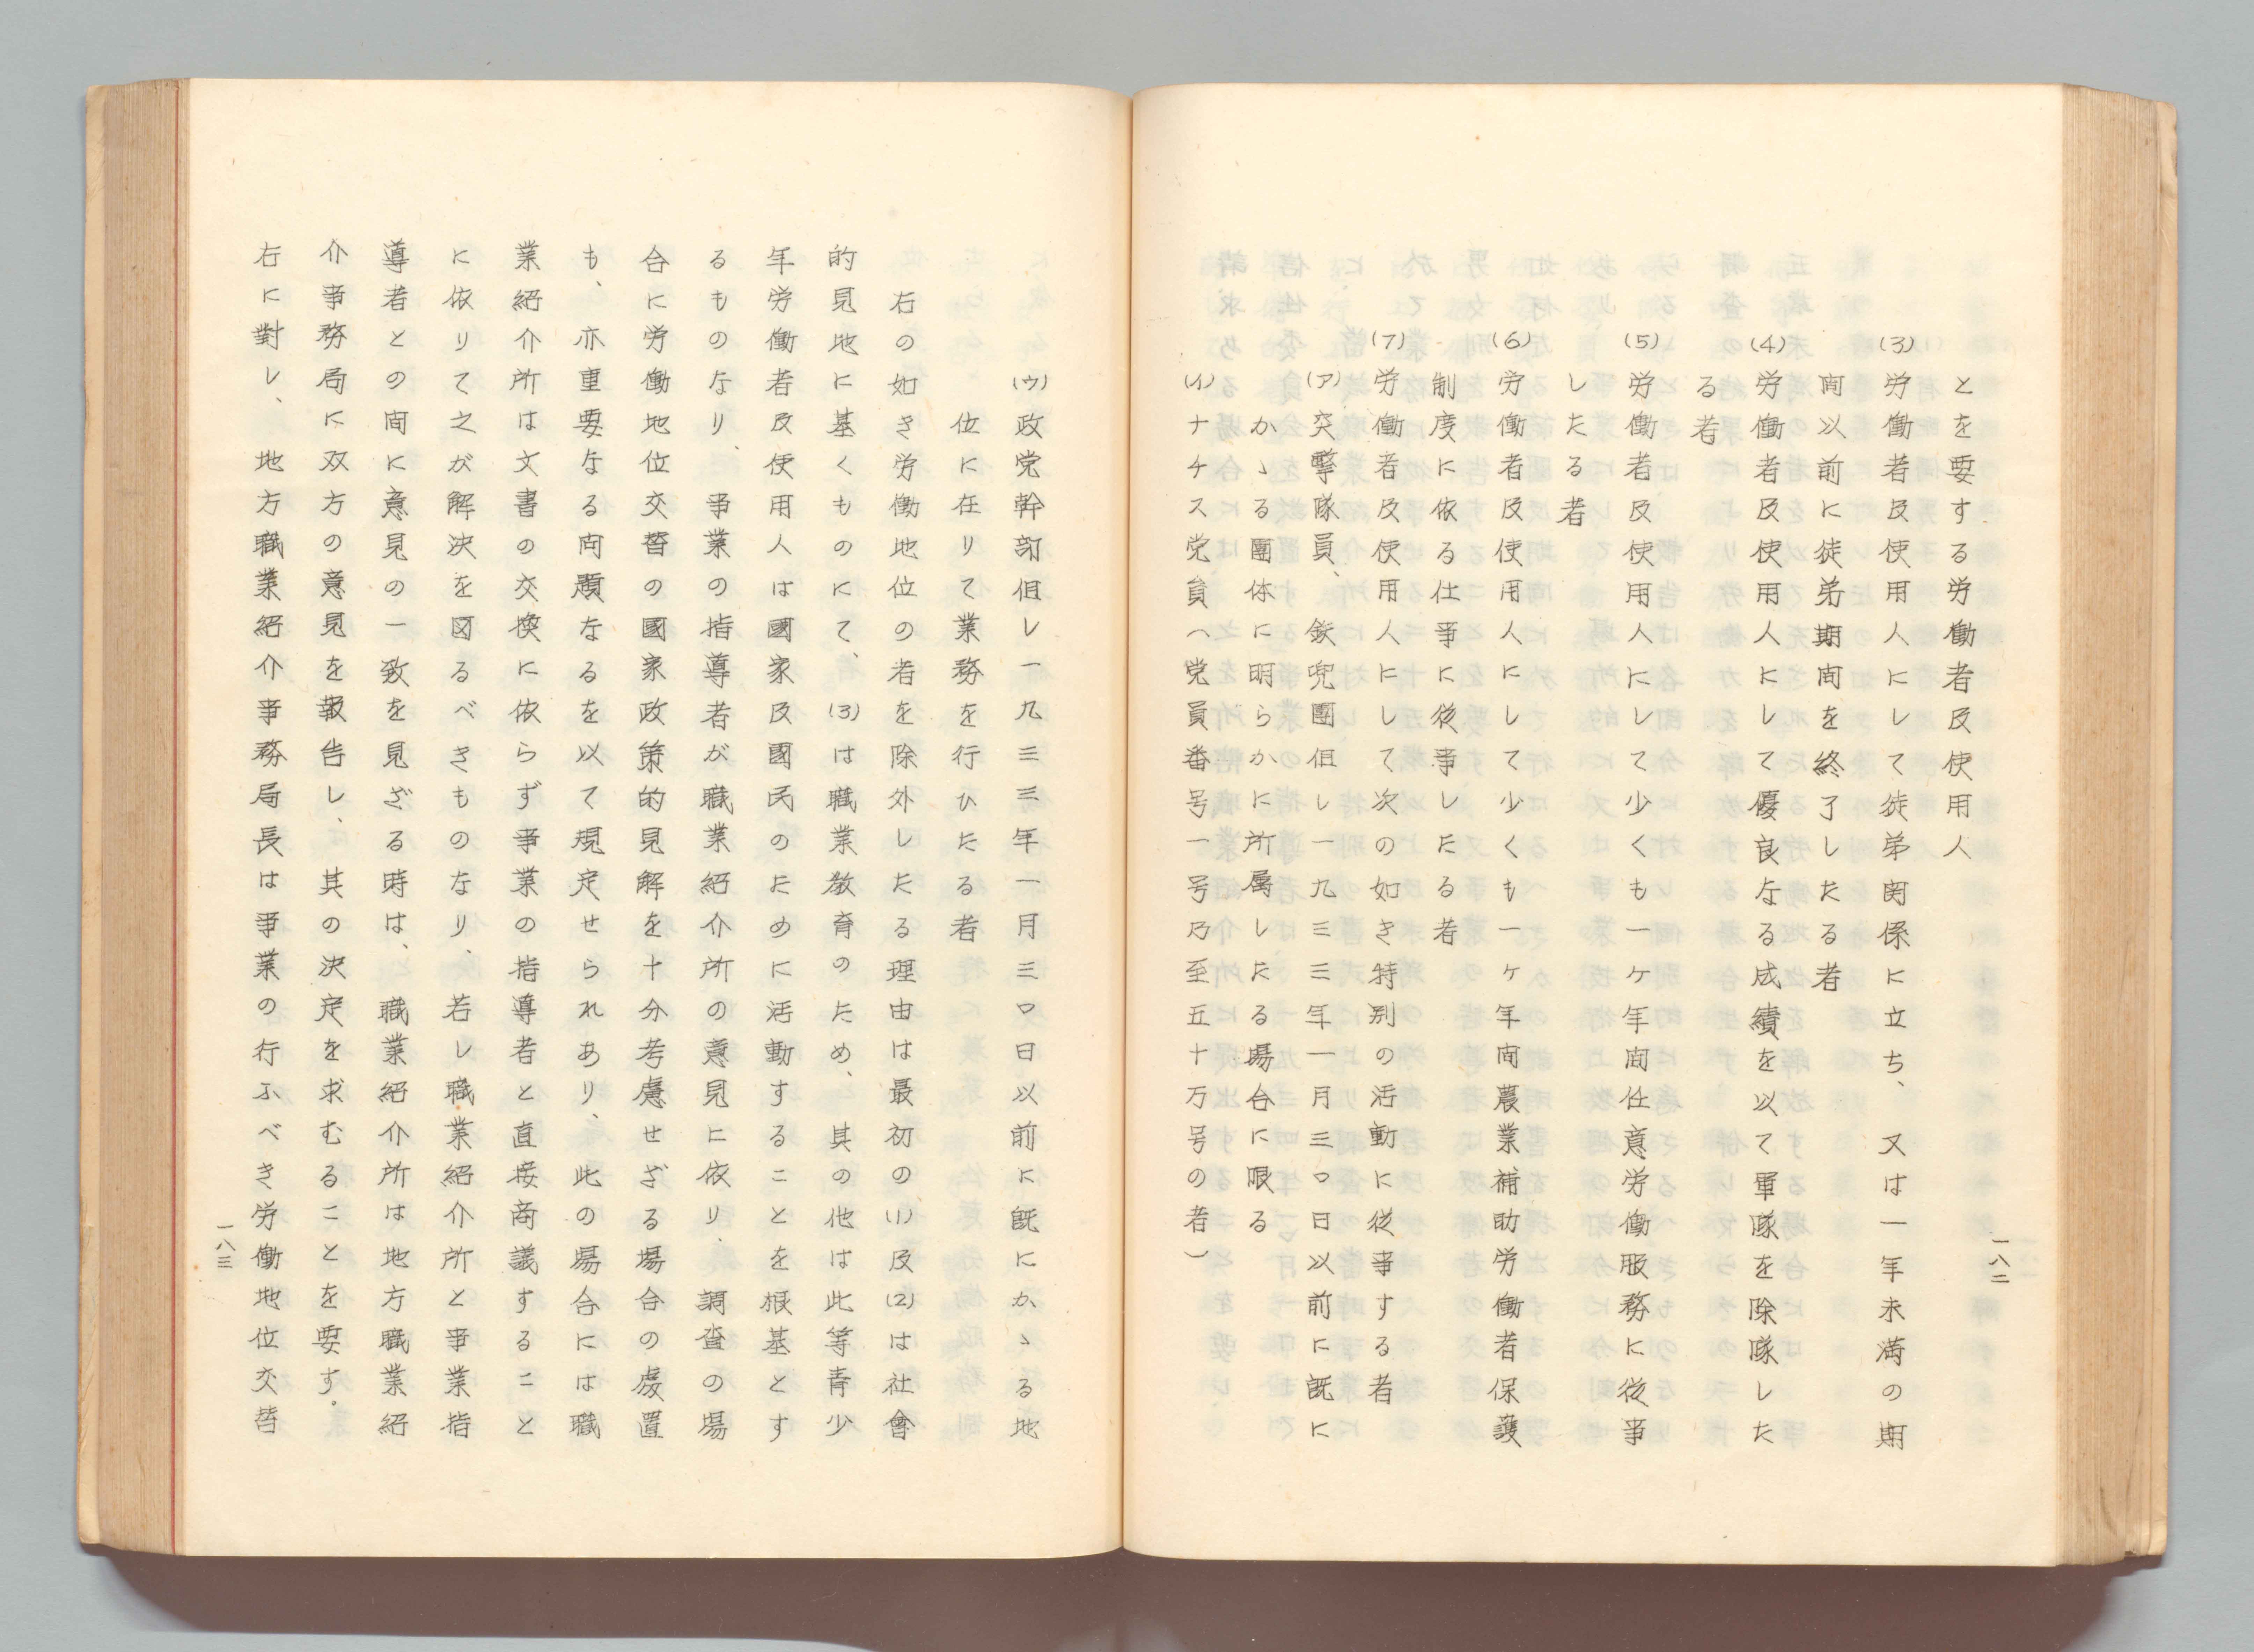 とを要する労働者及使用人
(3)労働者及使用人にして徒弟関係に立ち、又は一年未満の期
間以前に徒弟期間を終了したる者
(4)労働者及使用人にして優良なる成績を以て軍隊を除隊した
る者
(5)労働者及使用人にして少くも一ケ年間任意労働服務に従事
したる者
(6)労働者及使用人にして少くも一ケ年間農業補助労働者保護
制度に依る仕事に従事したる者
(7)労働者及使用人にして次の如き特別の活動に従事する者
(ア)突撃隊員、鉄兜團但し一九三三年一月三〇日以前に既に
かゝる團体に明らかに所属したる場合に限る
(イ)ナチス党員(党員番号一号乃至五十万号の者)
一八二
(ウ)政党幹部但し一九三三年一月三〇日以前に既にかゝる地
位に在りて業務を行ひたる者
右の如き労働地位の者を除外したる理由は最初の(1)及(2)は社會
的見地に基くものにて、(3)は職業教育のため、其の他は此等青少
年労働者及使用人は國家及國民のために活動することを根基とす
るものなり、事業の指導者が職業紹介所の意見に依り、調査の場
合に労働地位交替の國家政策的見解を十分考慮せざる場合の處置
も、亦重要なる問題なるを以て規定せられあり、此の場合には職
業紹介所は文書の交換に依らず事業の指導者と直接商議すること
に依りて之が解決を図るべきものなり、若し職業紹介所と事業指
導者との間に意見の一致を見ざる時は、職業紹介所は地方職業紹
介事務局に双方の意見を報告し、其の決定を求むることを要す。
右に對し、地方職業紹介事務局長は事業の行ふべき労働地位交替
一八三